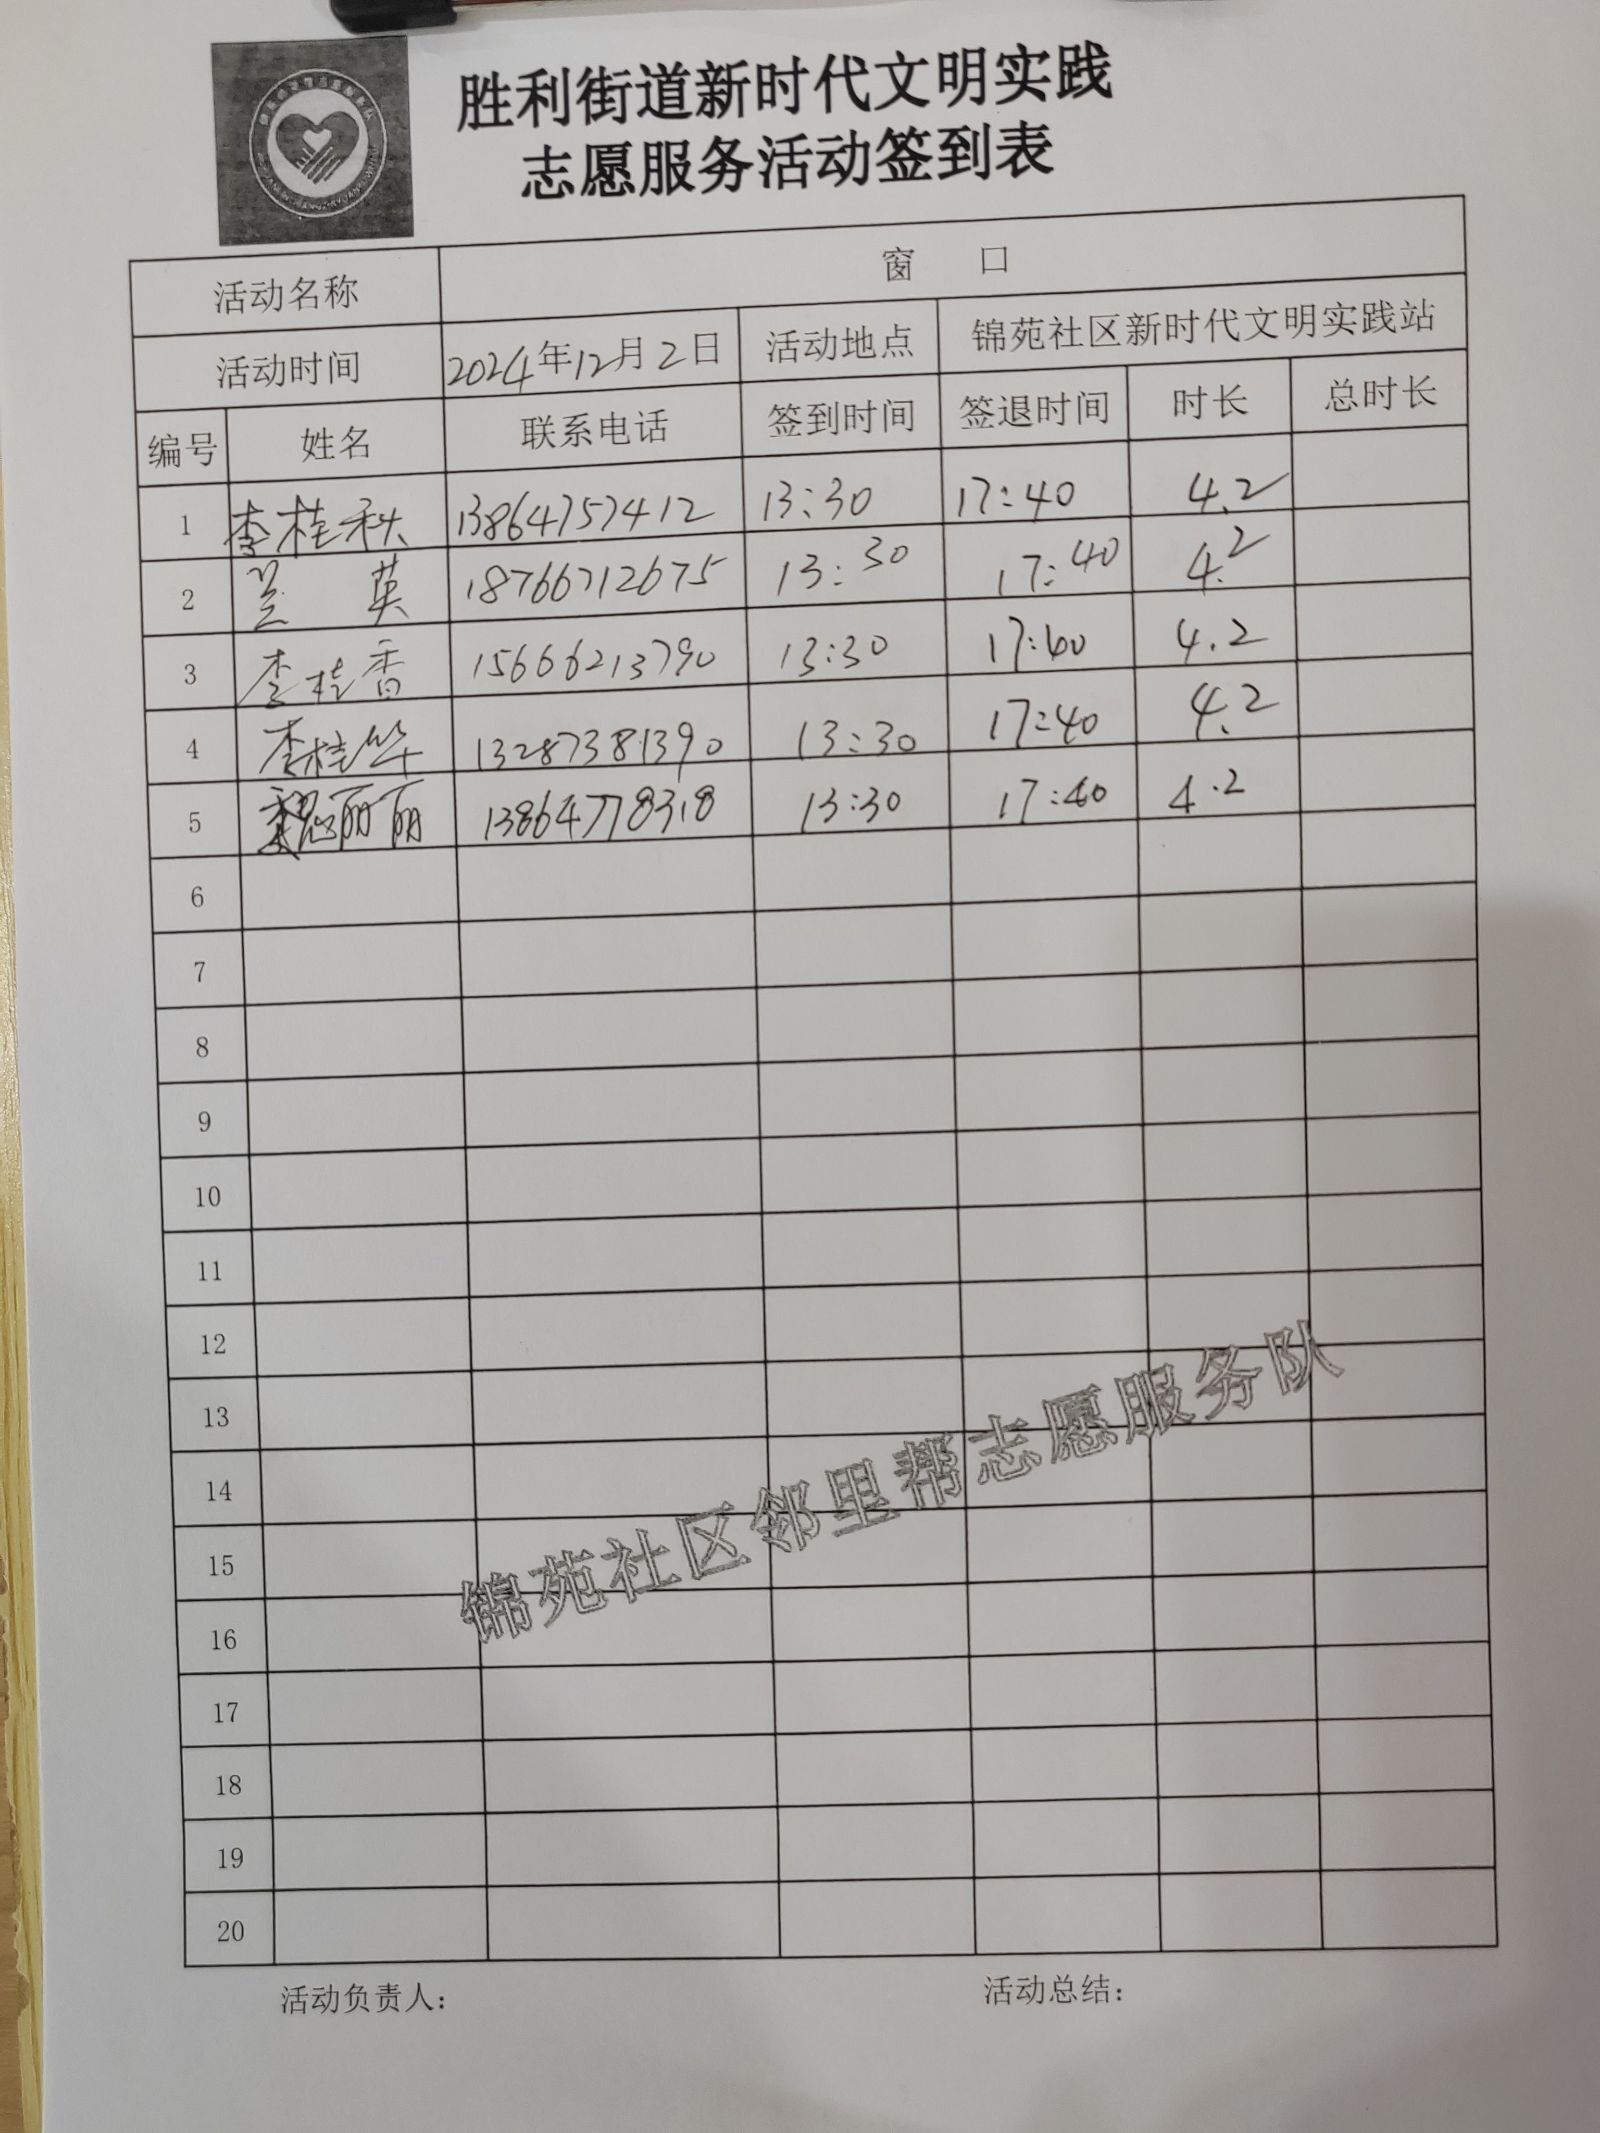 胜利街道新时代文明实践
志愿服务活动签到表
活动名称 窗 口
活动时间 2024年12月2日 活动地点 锦苑社区新时代文明实践站
编号 姓名 联系电话 签到时间 签退时间 时长 总时长
1 李桂秋 13864757412 13:30 17:40 4.2
2 兰英 18766712675 13:30 17:40 4.2
3 李桂香 15666213790 13:30 17:40 4.2
4 李桂华 13287381390 13:30 17:40 4.2
5 魏丽丽 13864778318 13:30 17:40 4.2
6
7
8
9
10
11
12
13
14
15
16
17
18
19
20
锦苑社区邻里帮志愿服务队
活动负责人： 活动总结：